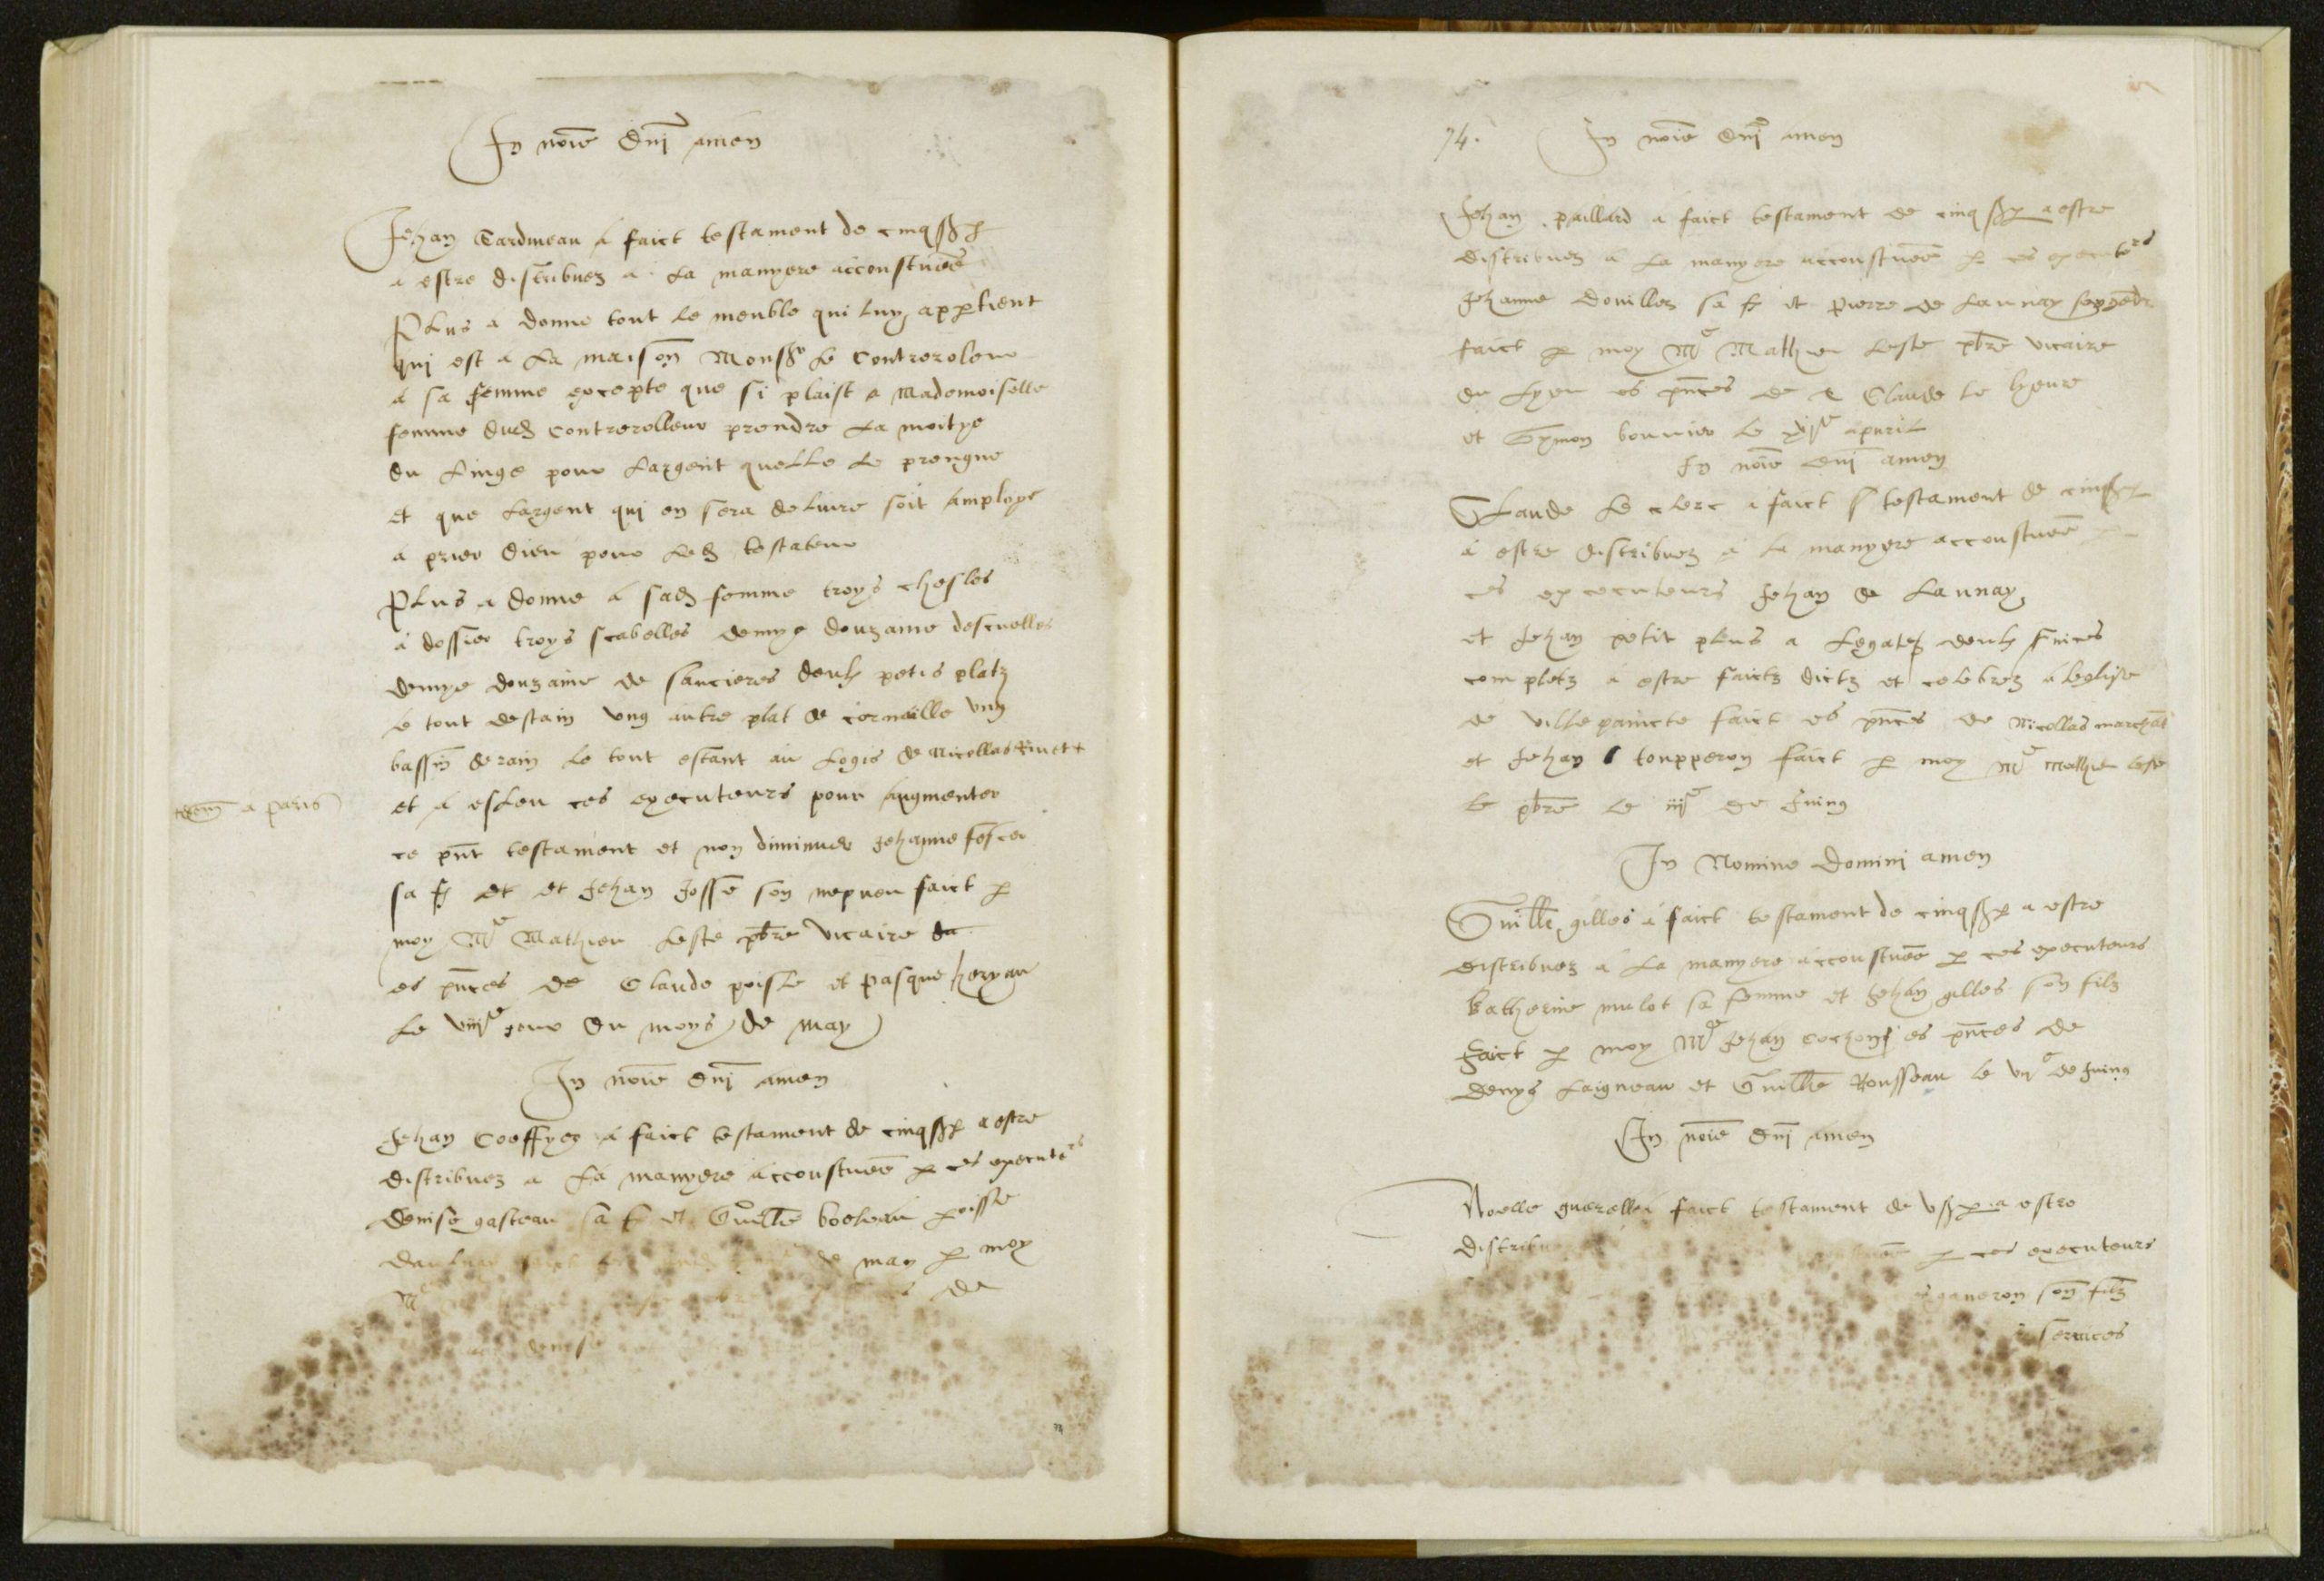 In noie dnj amen
Jehan Tardiveau a faict testament de cinq ss p
a estre distribuez a la manyere accoustuee
Plus a donne tout le meuble qui luy appartient
qui est a la maison Monsr le Controroleur
a sa femme excepte que si plaist a Mademoiselle
femme dud controrolleur prendre la moitye
du linge pour largent quelle le prengne
et que largent qui en sera delivre soit amploye
a prier dieu pour led testateur
Plus a donne a sad femme troys chesles
a dossier troys scabelles demye douzaine descuelles
demye douzaine de saucieres deulx petis platz
le tout destain ung autre plat de cornaille ung
bassin derain le tout estant au logis de Nicollas Rivet +
dem a paris
et a esleu ces executeurs pour augmenter
ce pnt testament et non diminuer Jehanne
sa f et et Jehan Josse son nepveu faict p
moy Me Mathieu Leste pbre vicaire
es pnces de Claude poisle et pasque
le viije jour du moys de may
In noie dnj amen
Jehan Coeffyer a faict testament de cinq ss p a estre
distribuez a la manyere accoustuee p ces executers
denise gasteau sa f et Guille boeleau poisse
de may p moy
de
denise
74.
In noie dnj amen
Jehan paillard a faict testament de cinq ss p a estre
distribuez a la manyere accoustuee p ces executers
Jehanne douillez sa f et Pierre de launay
faict p moy Me Mathieu Leste pbre vicaire
du lyeu es pnces de Claude le heure
et Symon bouvier le apuril
In noie dnj amen
Claude le clerc a faict testament de cinq ss p
a estre distribuez a la manyere accoustuee p
ces executeurs Jehan de launay
et Jehan petit plus a legate deulx suices
completz a estre faictz dictz et celebrez a leglise
de villepaincte faict es pnces de Nicollas marchat
et Jehan toupperon faict p moy Me Mathieu leste
le pbre le iije de Juing
In Nomine Domini amen
Guille gilles a faict testament de cinq ss p a estre
distribuez a la manyere accoustuee p ces executeurs
Katherine mulot sa femme et Jehan gilles son filz
faict p moy Me Jehan Cochon es pnces de
denys laigneau et Guille Rousseau le vje de Juing
In noie dnj amen
Noelle guerelle a faict testament de v ss p a estre
distribu p ces executeurs
son filz
services